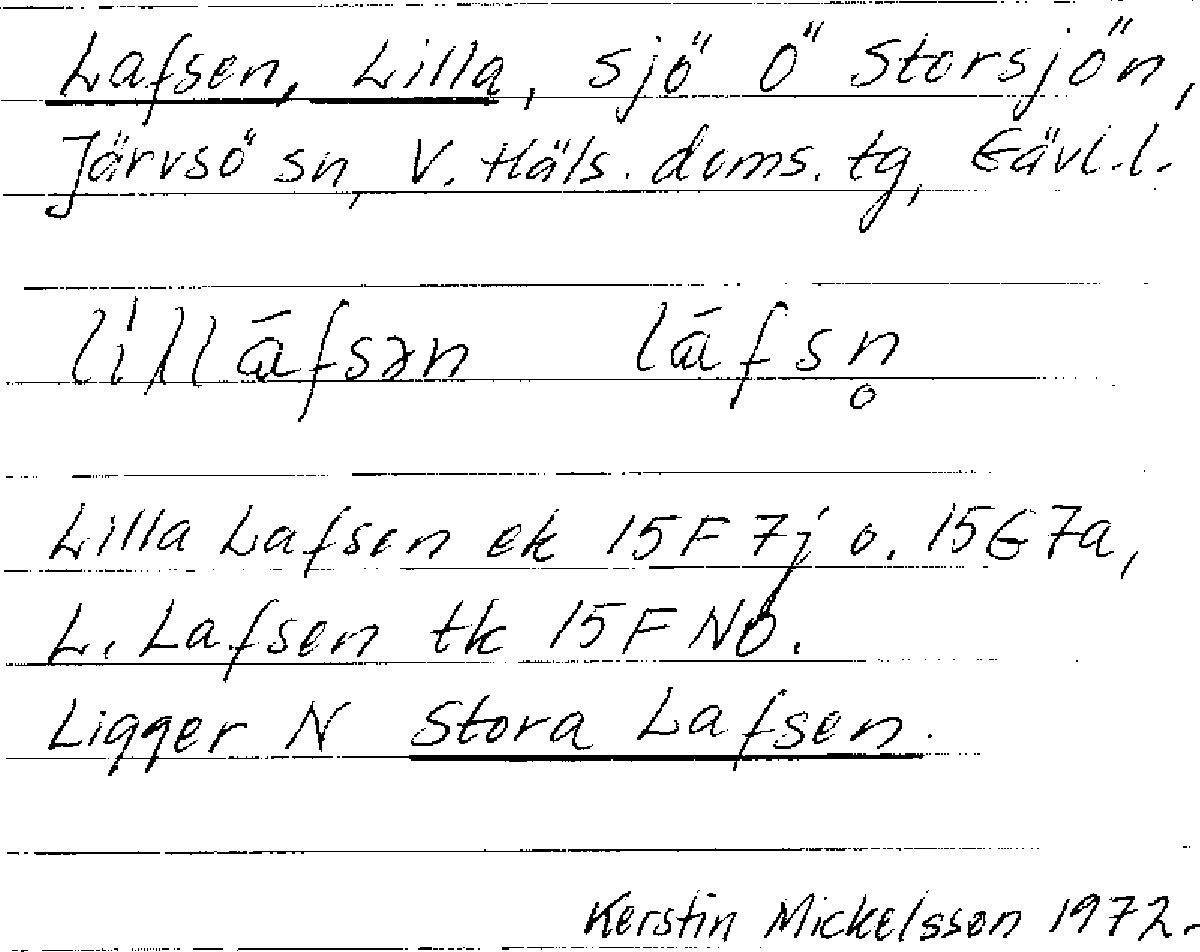 Lafsen, Lilla, sjö Ö Storsjön,
Järvsö sn, V. Häls. doms. tg, Gävl.l.
Lilla Lafsen ek 15F 7j o. 15G 7a,
L. Lafsen tk 15F NO.
Ligger N Stora Lafsen.
Kerstin Mickelsson 1972.